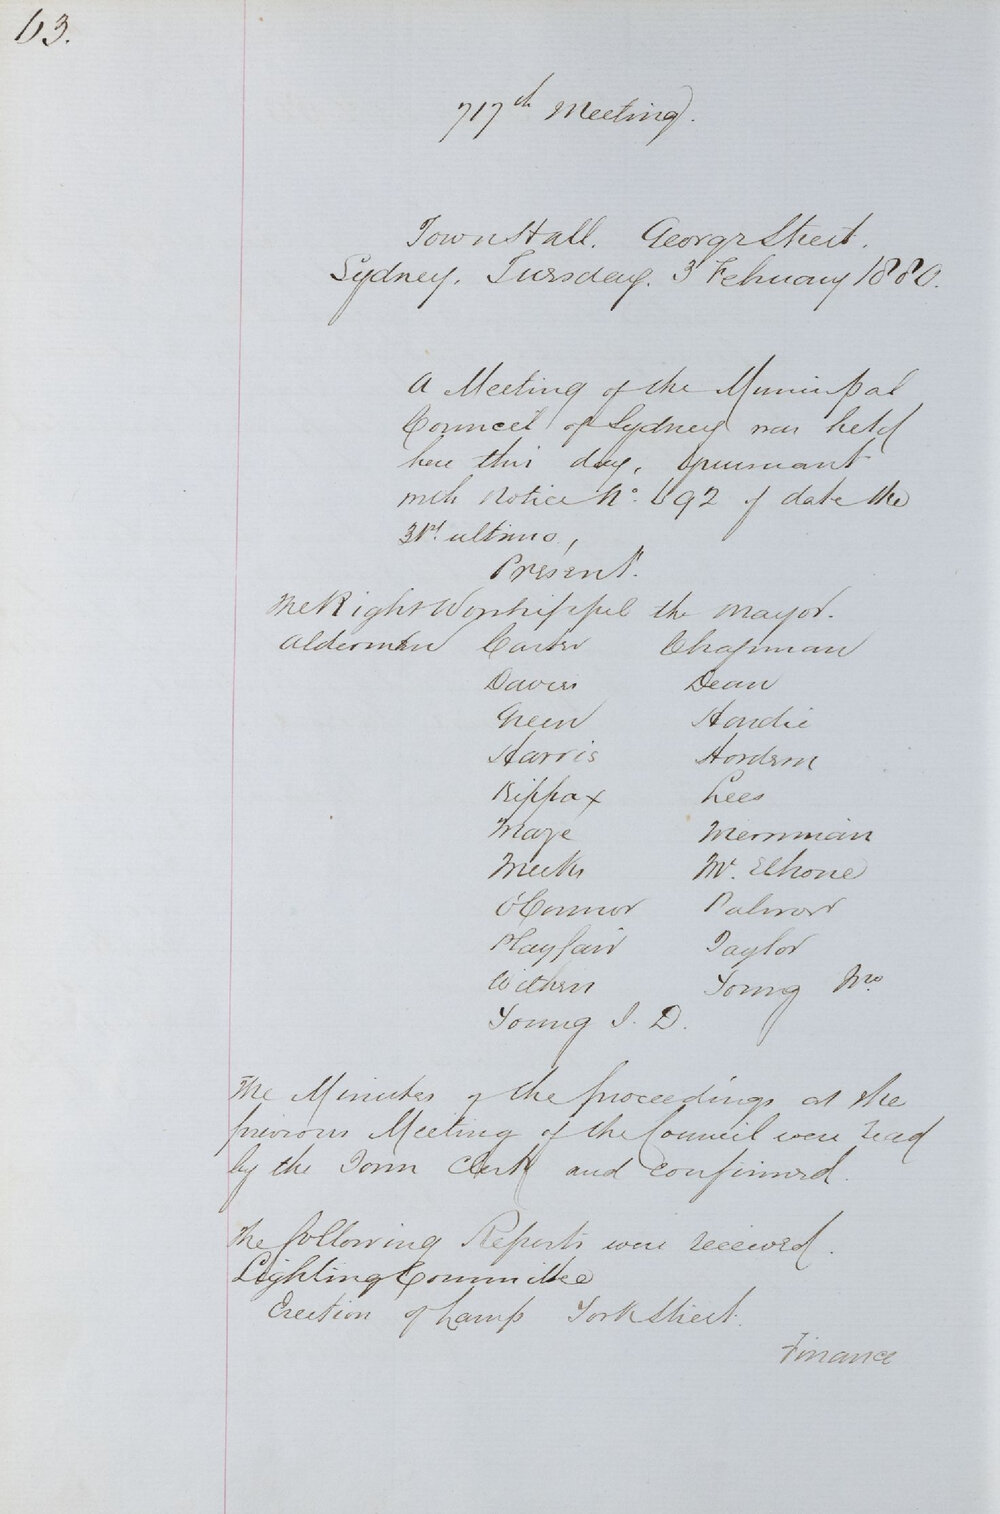 63.
717th Meeting.
Town Hall. George Street.
Sydney. Tuesday. 3 February 1880.
A Meeting of the Municipal
Council of Sydney was held
here this day, pursuant
with Notice No. 692 of date the
31st. ultimo,
Present.
The Right Worshipful the Mayor.
Aldermen Carter Chapman
Davies Dean
Green Hardie
Harris Hordern
Kippax Lees
Maze Merriman
Meeks Mc. Elhone
O'Connor Palmer
Playfair Taylor
Withers Young
Young J. D.
The Minutes of the proceedings at the
previous Meeting of the Council were read
by the Town Clerk and confirmed.
The following Reports were received.
Lighting Committee
Erection of Lamp York Street.
Finance